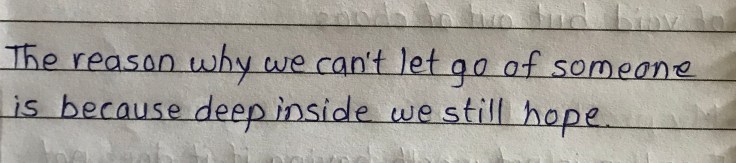 The reason why we can't let go of someone
is because deep inside we still hope.